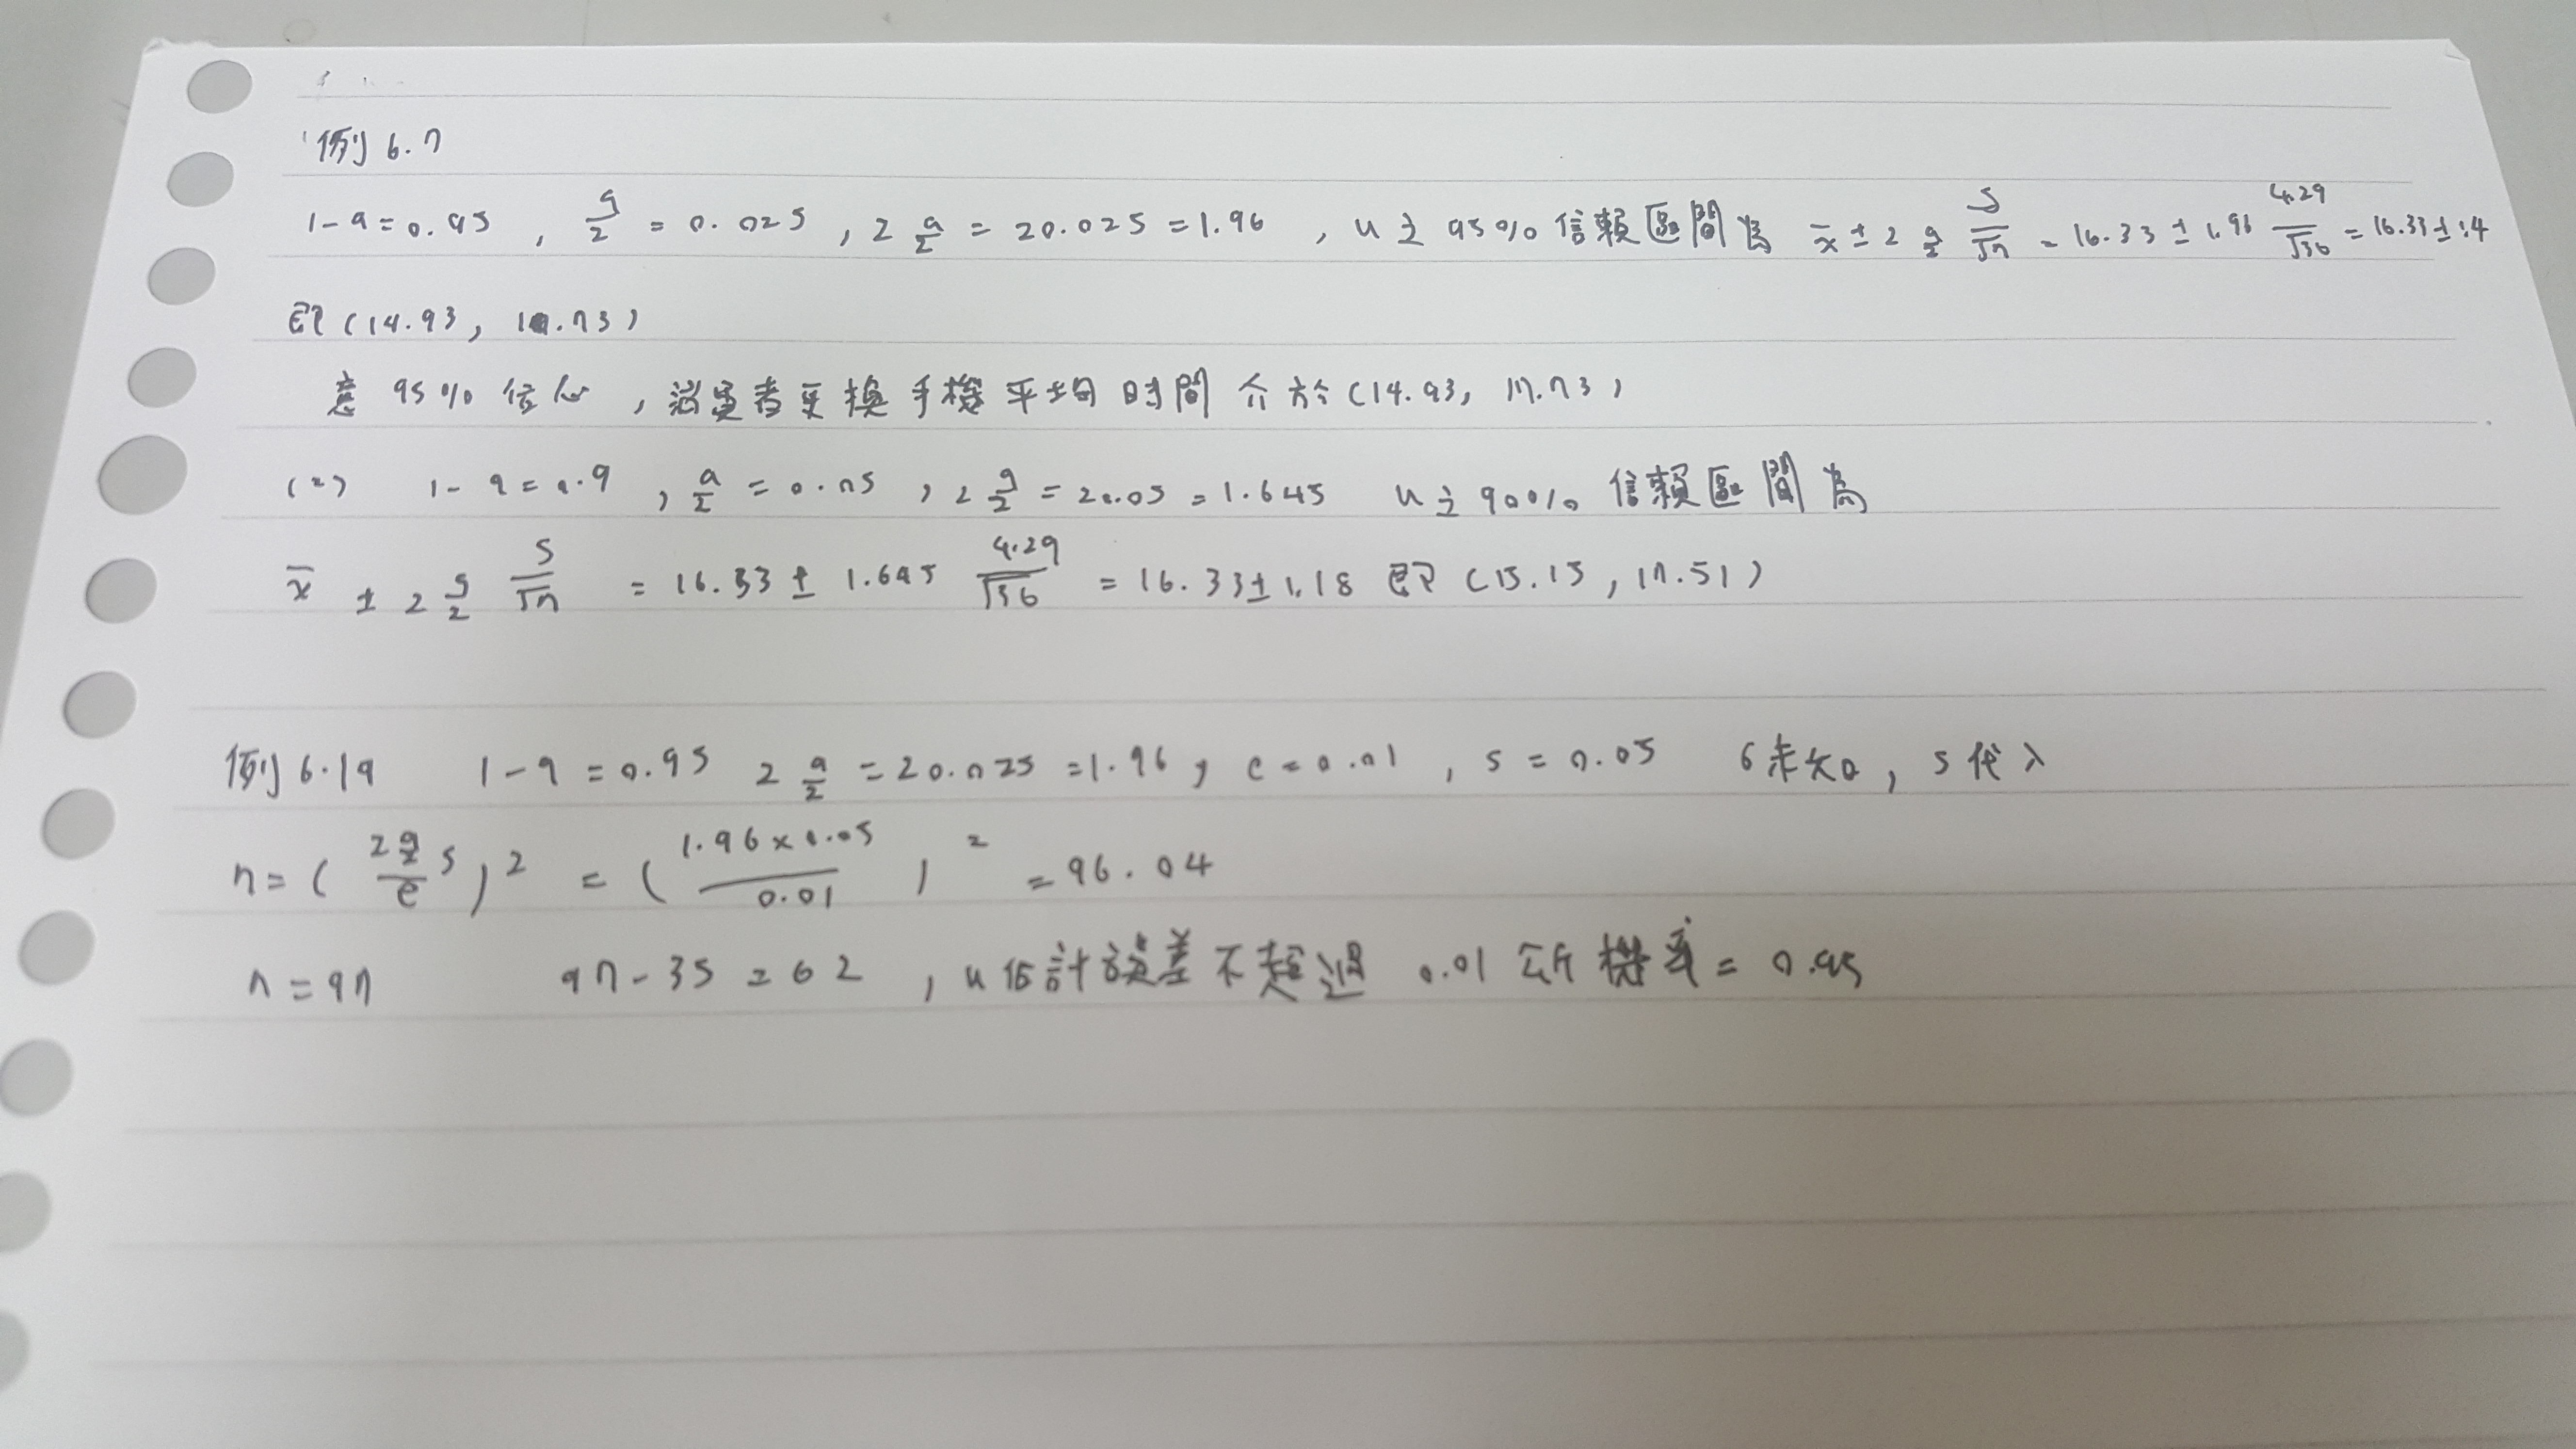 例 6.7
1-a=0.95 , a/2 = 0.025 , 2 a/2 = 20.025 = 1.96 , u 之 95% 信賴區間為 x̄ ± 2 a/2 S/√n = 16.33 ± 1.96 4.29/√36 = 16.33±1.4
即 (14.93, 17.73)
意 95% 信心 , 消費者更換手機平均時間介於 (14.93, 17.73)
(2) 1-a=0.9 , a/2 = 0.05 , 2 a/2 = 20.05 = 1.645 u 之 90% 信賴區間為
x̄ ± 2 a/2 S/√n = 16.33 ± 1.645 4.29/√36 = 16.33±1.18 即 (15.15, 17.51)
例 6.19 1-a=0.95 2 a/2 = 20.025 = 1.96 , e=0.01 , s=0.05 6未知 , s代入
n = ( 2 a/2 s/e )² = ( 1.96×0.05/0.01 )² = 96.04
n=97 97-35=62 , u估計誤差不超過 0.01 機率=0.95